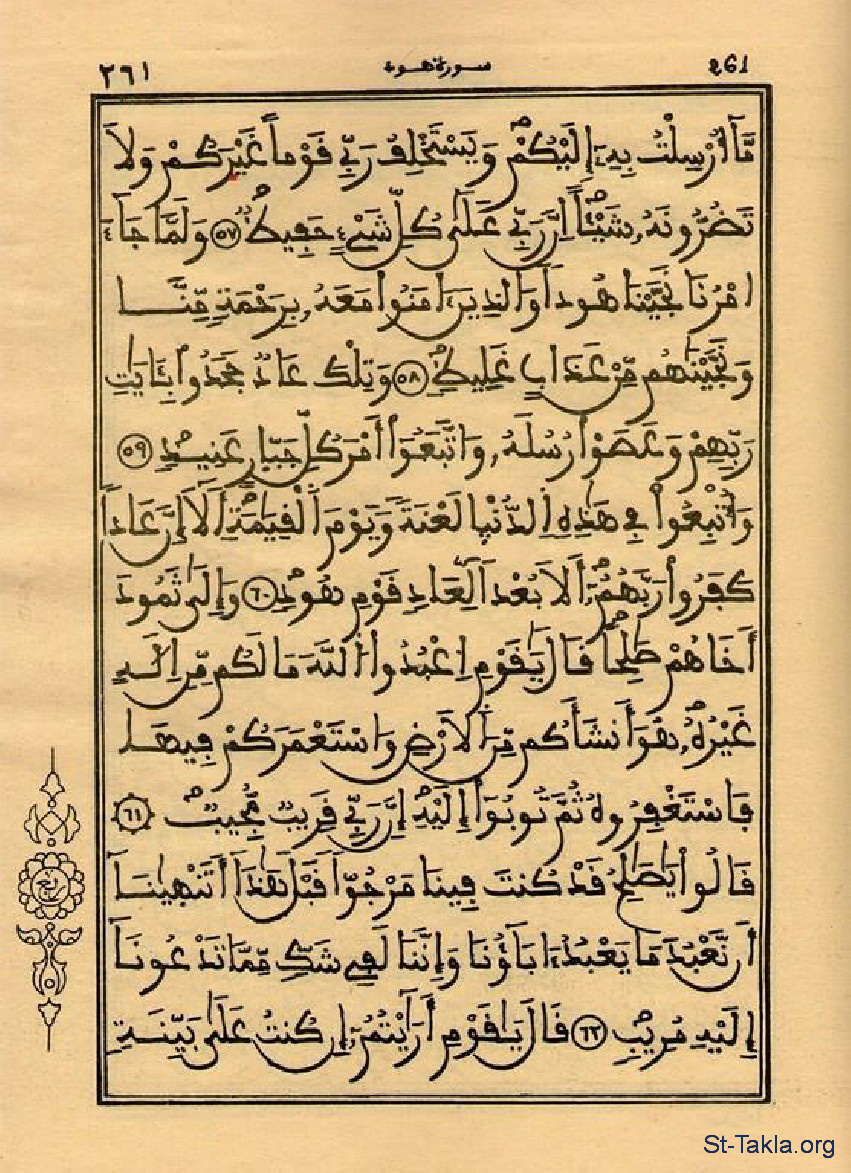 261 سورة هود ٢٦١
مَّآ أُرْسِلْتُ بِهِۦٓ إِلَيْكُمْۖ وَيَسْتَخْلِفُ رَبِّے قَوْماً غَيْرَكُمْ وَلَا
تَضُرُّونَهُۥ شَيْـًٔاۖ اِنَّ رَبِّے عَلَىٰ كُلِّ شَےْءٍ حَفِيظٞۖ ٥٧ وَلَمَّا جَآءَ
امْرُنَا نَجَّيْنَا هُوداٗ وَالذِينَ ءَامَنُواْ مَعَهُۥ بِرَحْمَةٖ مِّنَّا
وَنَجَّيْنَٰهُم مِّنْ عَذَابٍ غَلِيظٖۖ ٥٨ وَتِلْكَ عَادٞ جَحَدُواْ بِـَٔايَٰتِ
رَبِّهِمْ وَعَصَوْاْ رُسُلَهُۥ وَاتَّبَعُوٓاْ أَمْرَ كُلِّ جَبَّارٍ عَنِيدٖۖ ٥٩
وَأُتْبِعُواْ فِے هَٰذِهِ اِلدُّنْيَا لَعْنَةٗ وَيَوْمَ اَلْقِيَٰمَةِۖ أَلَآ إِنَّ عَاداٗ
كَفَرُواْ رَبَّهُمْۖ أَلَا بُعْداٗ لِّعَادٖ قَوْمِ هُودٖۖ ٦٠ وَإِلَىٰ ثَمُودَ
أَخَاهُمْ صَٰلِحاٗۖ قَالَ يَٰقَوْمِ اِعْبُدُواْ اُللَّهَ مَا لَكُم مِّنِ اِلَٰهٍ
غَيْرُهُۥۖ هُوَ أَنشَأَكُم مِّنَ اَلَارْضِ وَاسْتَعْمَرَكُمْ فِيهَا
فَاسْتَغْفِرُوهُ ثُمَّ تُوبُوٓاْ إِلَيْهِۖ إِنَّ رَبِّے قَرِيبٞ مُّجِيبٞۖ ٦١
قَالُواْ يَٰصَٰلِحُ قَدْ كُنتَ فِينَا مَرْجُوّاٗ قَبْلَ هَٰذَآ أَتَنْهَىٰنَآ
أَن نَّعْبُدَ مَا يَعْبُدُ ءَابَآؤُنَا وَإِنَّنَا لَفِے شَكّٖ مِّمَّا تَدْعُونَآ
إِلَيْهِ مُرِيبٖۖ ٦٢ قَالَ يَٰقَوْمِ أَرَٰٓيْتُمُۥٓ إِن كُنتُ عَلَىٰ بَيِّنَةٖ
St-Takla.org